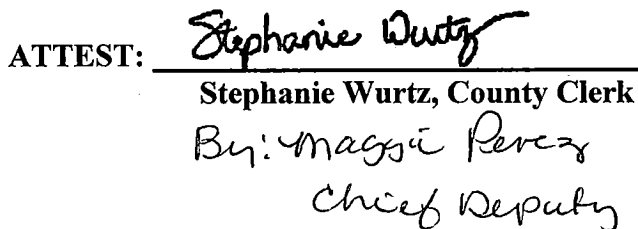 Stephanie Wurtz
ATTEST:
Stephanie Wurtz, County Clerk
By: Maggie Perez
Chief Deputy